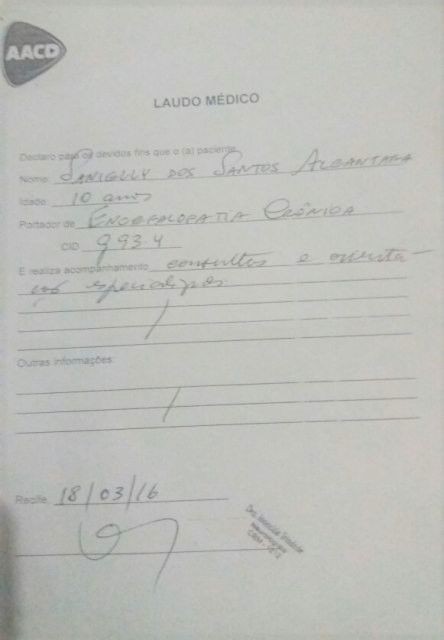 AACD
LAUDO MÉDICO
Declaro para os devidos fins que o (a) paciente
Nome: DANIELLY DOS SANTOS ALCANTARA
Idade: 10 anos
Portador de ENCEFALOPATIA CRÔNICA
CID G93.4
E realiza acompanhamento consultas e orienta-
ções
Outras informações:
Recife, 18/03/16
Dra.